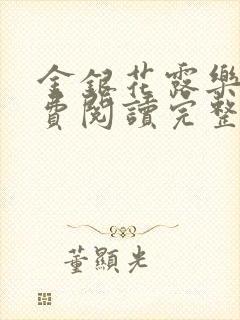 金銀花露樂
費閱讀完整
董顯光